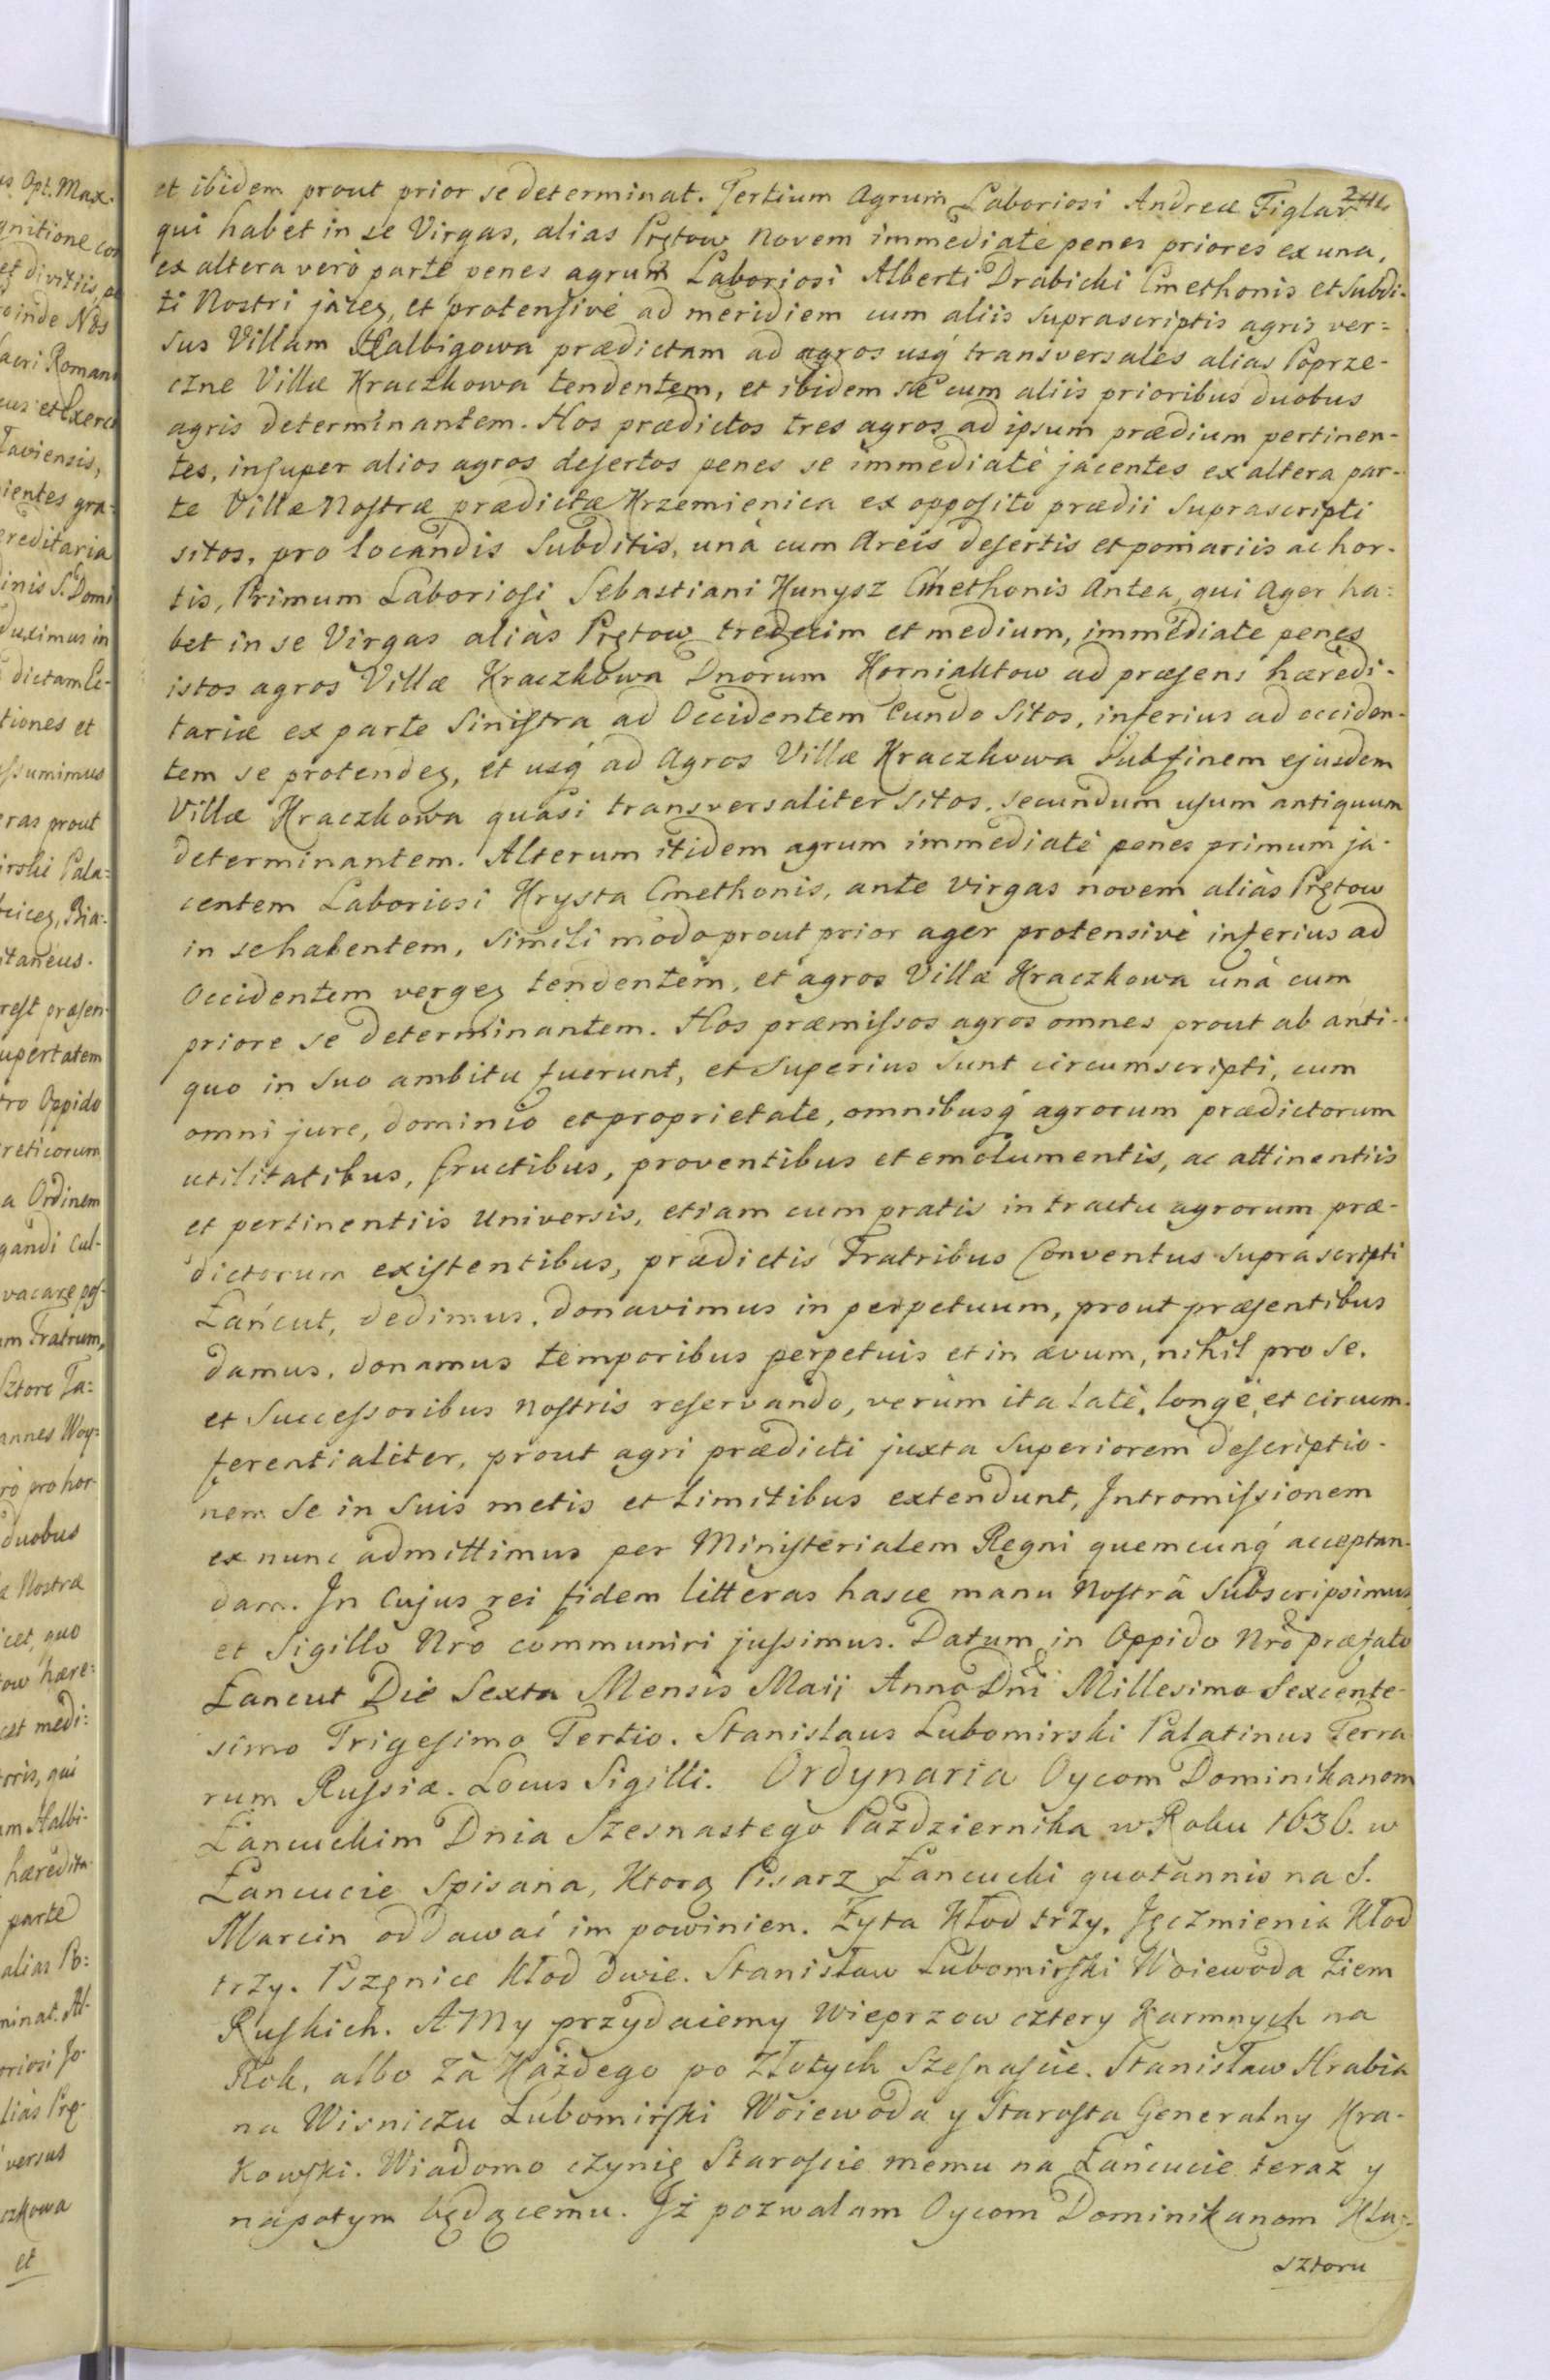 et ibidem prout prior se determinat. Tertium Agrum Laboriosi Andreæ Figlar
qui habet in se Virgas, alias Prętow Novem immediate penes priores ex una,
ex altera verò parte penes agrum Laboriosi Alberti Drabicki Cmethonis et Subdi-
ti Nostri jaceֽ, et protensivè ad meridiem cum aliis suprascriptis agris ver=
sus Villam Halbigowa prædictam ad agros usq́ transversales alias Poprze-
czne Villæ Kraczkowa tendentem, et ibidem se cum aliis prioribus duobus
agris determinantem. Hos prædictos tres agros ad ipsum prædium pertinen-
tes, insuper alios agros desertos penes se immediatè jacentes ex altera par-
te Villæ Nostræ prædictæ Krzemienica ex opposito prædii suprascripti
sitos, pro locandis Subditis, unà cum Areis desertis et pomariis ac hor-
tis, Primum Laboriosi Sebastiani Kunysz Cmethonis Antea, qui Ager ha:
bet in se Virgas aliàs Prętow tredecim et medium, immediate penes
istos agros Villæ Kraczkowa Dnorum Korniaktow ad præsens hæredi-
tariæ ex parte Sinistra ad Occidentem Eundo Sitos, inferius ad occiden-
tem se protendeֽ, et usq́ ad Agros Villæ Kraczkowa sub finem ejusdem
Villæ Kraczkowa quasi transversaliter sitos, secundum usum antiquum
determinantem. Alterum itidem agrum immediatè penes primum ja-
centem Laboriosi Krysta Cmethonis, ante Virgas novem aliàs Prętow
in se habentem, simili modo prout prior ager protensivè inferius ad
Occidentem vergeֽ tendentem, et agros Villæ Kraczkowa unà cum
priore se determinantem. Hos præmissos agros omnes prout ab anti-
quo in suo ambitu fuerunt, et superius sunt circumscripti, cum
omni jure, dominio et proprietate, omnibusq́ agrorum prædictorum
utilitatibus, fructibus, proventibus et emolumentis, ac attinentiis
et pertinentiis Universis, etiam cum pratis in tractu agrorum præ-
dictorum existentibus, prædictis Fratribus Conventus suprascripti
Łańcut, dedimus, donavimus in perpetuum, prout præsentibus
damus, donamus temporibus perpetuis et in ævum, nihil pro se,
et Successoribus nostris reservando, verùm ita latè, longè, et circum-
ferentialiter, prout agri prædicti juxta superiorem descriptio-
nem se in suis metis et limitibus extendunt, Intromissionem
ex nunc admittimus per Ministerialem Regni quemcunq́ acceptan-
dam. In Cujus rei fidem litteras hasce manu Nostrâ subscripsimus,
et Sigillo Nrõ communiri jussimus. Datum in Oppido Nrõ præfato
Łancut Die Sexta Mensis Maii Anno Dni Millesimo Sexcente-
simo Trigesimo Tertio. Stanislaus Lubomirski Palatinus Terra
rum Russiæ. Locus Sigilli. Ordynaria Oycom Dominikanom
Łancuckim Dnia Szesnastego Pazdziernika w Roku 1636. w
Łancucie Spisana, Ktorą Pisarz Łancucki quotannis na S.
Marcin oddawać im powinien. Żyta Kłod trzy, Jęczmienia Kłod
trzy. Pszęnice Kłod dwie. Stanisław Lubomirski Woiewoda Ziem
Ruskich. A My przydaiemy Wieprzow cztery Karmnych na
Rok, albo za Każdego po Złotych Szesnaście. Stanisław Hrabia
na Wisniczu Lubomirski Woiewoda y Starosta Generalny Kra-
kowski. Wiadomo czynię Staroscie memu na Łańcucie teraz y
napotym będącemu. Iż pozwalam Oycom Dominikanom Kla-
sztoru